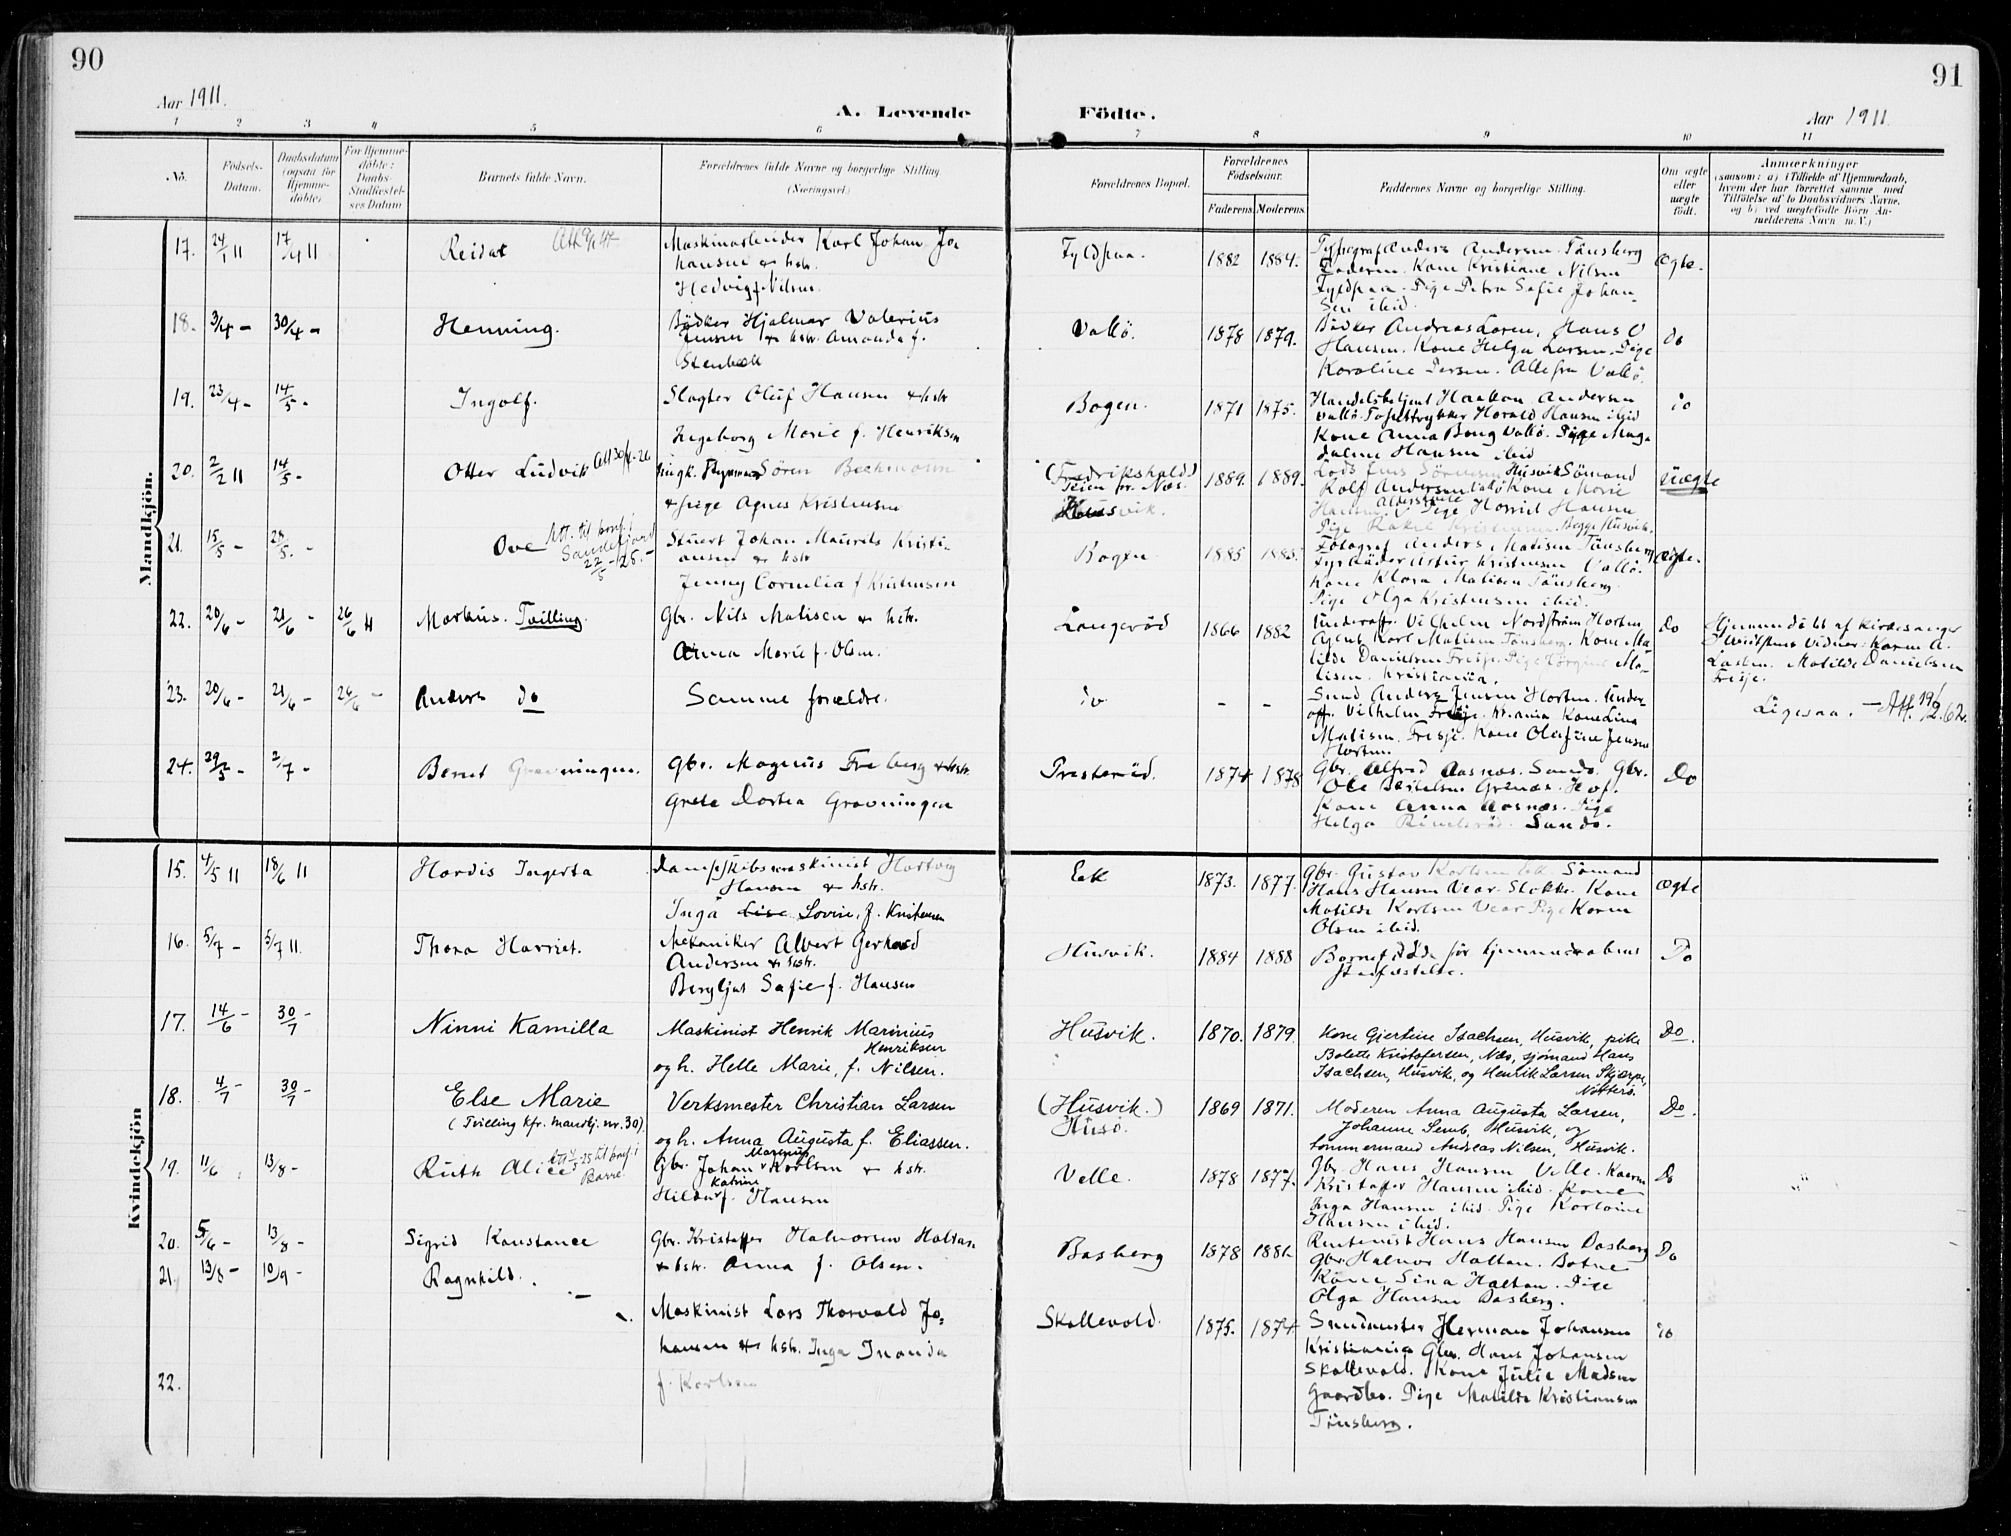 90
91
Aar 1911.
A. Levende
Födte.
Aar 1911.
1 2 3 4 5 6 7 8 9 10 11
No.
Födsels-
Datum.
Daabsdatum
(ogsaa for
Hjemme-
döbte)
For Hjemme-
döbte:
Daabs-
Stadfæstel-
ses Datum
Barnets fulde Navn.
Forældrenes fulde Navne og borgerlige Stilling
(Næringsvei.)
Forældrenes Bopæl.
Forældrenes
Födselsaar.
Faderens. Moderens.
Faddernes Navne og borgerlige Stilling.
Om ægte
eller
uægte
født.
Anmærkninger
(saasom: a) i Tilfælde af Hjemmedaab,
hvem der har forrettet samme, med
Tilföielse af to Daabsvidners Navne,
og b) ved uægtefödte Börn An-
melderens Navn m.V.)
Mandkjön.
17. 24/1 11 17/4 11 Reidar
Maskinarbeider Karl Johan Jo
hansen & hstr.
Hedvig f. Nilsen
Fyldpaa. 1882 1884.
Typograf Anders Andersen Tönsberg
Faderen. Kone Kristiane Nilsen
Fyldpaa. Pige Petra Sofie Johan-
sen ibid.
Ægte.
18. 3/4 - 30/4 - Henning.
Bödker Hjalmar Valerius
Jensen & hstr. Amanda f.
Stenbæk
Vallö. 1878 1879.
Bödker Andreas Larsen, Hans O
Hansen. Kone Helga Larsen. Pige
Karoline Persen. Alle fra Vallö.
do
19. 23/4 - 14/5 - Ingolf.
Slagter Oluf Hansen & hstr
Ingeborg Marie f. Henriksen
Bogen. 1871 1875.
Handelsbetjent Haakon Andersen
Vallö. Tapettrykker Harald Hansen ibid
Kone Anna Berg Vallö. Pige Mag-
daline Hansen ibid
do
20. 2/2 11 14/5 - Otter Ludvik
Ungk. Sören Bechmann
& pige Agnes Kristensen
(Fredrikshald)
Teien pr. Næs.
Husvik.
1889. 1889.
Lods Jens Sörensen Husvik Sömand
Rolf Andersen Kone Marie
Hansen Pige Harriet Hansen
Pige Rakel Kristensen. Begge Husvik.
Uægte
21. 15/5 - 28/5 - Ove
Att. til konf. i
Sandefjord
22/5 - 25. -
Stuert Johan Maurits Kristi-
ansen & hstr
Jenny Cornelia f Kristensen
Bogen 1885 1883.
Fotograf Anders Matisen Tönsberg
Fyrböder Artur Kristensen Vallö.
Kone Klara Matisen Tönsberg
Pige Olga Kristensen ibid.
Ægte.
22. 20/6 - 21/6 - 26/6 11 Markus. Tvilling.
Gbr. Nils Matisen & hstr.
Anna Marie f. Olsen.
Langeröd 1866 1882
Underoff. Vilhelm Nordström Horten
Agent Karl Matisen Tönsberg. Kone Ma-
tilde Danielsen Fresje. Pige Ma-
tisen. Kristiania.
do
Hjemmedöbt af Kirkesanger
Vidner: Karen A.
Matilde Danielsen
Fresje.
23. 20/6 - 21/6 - 26/6 - Anders do
Samme forældre.
do - -
Smed Anders Jensen Horten. Under-
off. Vilhelm Kone Lina
Matisen. Fresje. Kone Olefine Jensen
Horten.
Ligesaa. - Att. 19/2.62.
24. 29/5 - 2/7 - Bernt Gravningen.
Gbr. Magnus Freberg & hstr.
Grete Dortea Gravningen
Presteröd. 1874 1878
Gbr. Alfred Aasnæs. Sande. Gbr.
Ole Bertelsen Grenæs. Hof.
Kone Anna Aasnæs. Pige
Helga Sande.
Do
Kvindekjön
15. 4/5 11 18/6 11 Hardis Ingerta
Dampskibsmaskinist Hartvig
Hansen & hstr.
Inga Lovise, f. Kristensen
Eek 1873. 1877.
Gbr. Gustav Karlsen Eik. Sömand
Hans Hansen Vear. Stokke. Kone
Matilde Karlsen Vear Pige Karen
Olsen ibid.
Ægte
16. 5/7 - 5/7 11. Thora Harriet.
Mekaniker Albert Gerhard
Andersen & hstr.
Bergljot Sofie f. Hansen
Husvik. 1884 1888
Barnet döde för hjemmedaabens
stadfæstelse.
Do
17. 14/6 - 30/7 - Ninni Kamilla
Maskinist Henrik Marinius
Henriksen
og h. Helle Marie, f. Nilsen.
Husvik. 1870. 1879.
Kone Gjertine Isachsen, Husvik, pike
Bolette Kristofersen, Næs, sjömand Hans
Isachsen, Husvik, og Henrik Larsen Skjerpe,
Nötterö.
Do.
18. 4/7 - 30/7 - Else Marie
(Tvilling kfr. mandkj. nr. 30)
Verksmester Christian Larsen
og h. Anna Augusta f. Eliassen.
(Husvik.)
Husö.
1869 1871.
Moderen Anna Augusta Larsen,
Johanne Semb, Husvik, og
tömmermand Andreas Nilsen, Husvik.
Do.
19. 11/6 13/8 - Ruth Alice
til konf. i
Borre
Gbr. Johan Marinus Karlsen & hstr.
Hilda Katrine f. Hansen
Velle. 1878 1877.
Gbr. Hans Hansen Velle. Kaarne
Kristoffer Hansen ibid. Kone
Inga Hansen ibid. Pige Karoline
Hansen ibid.
Do
20. 5/6 - 13/8 - Sigrid Konstance
Gbr. Kristoffer Halvorsen Holtan
& hstr. Anna f. Olsen.
Basberg 1878 1881.
Rentenist Hans Hansen Basberg
Gbr. Halvor Holtan. Botne
Kone Sina Holtan. Pige
Olga Hansen Basberg.
Do
21. 13/8 - 10/9 - Ragnhild.
Maskinist Lars Thorvald Jo-
hansen & hstr. Inga Inanda
f. Karlsen
Skallevold. 1875. 1874
Herman Johansen
Kristiania Gbr. Hans Johansen
Skallevold. Kone Julie Madsen
Gaardbo. Pige Matilde Kristiansen
Tönsberg.
do
22.